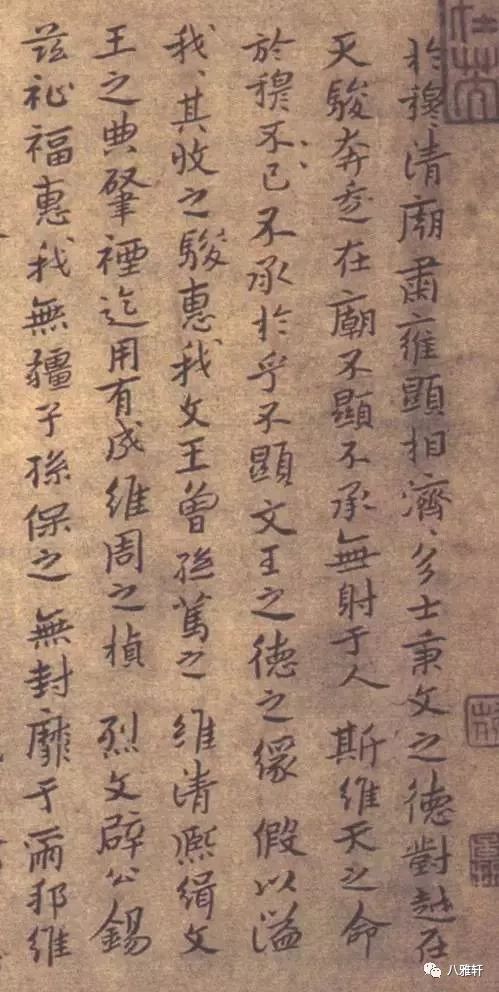 於穆、清廟肅雍顯相濟、多士秉文之德對越在
天駿奔走在廟不顯不承無射于人 斯維天之命
於穆不已不承於乎不顯文王之德之 假以溢
我、其收之駿惠我文王曾孫篤之 維清熙緝文
王之典肇禋迄用有成維周之楨 烈文辟公錫
茲祉福惠我無疆子孫保之 無封靡于爾邦維
八雅轩